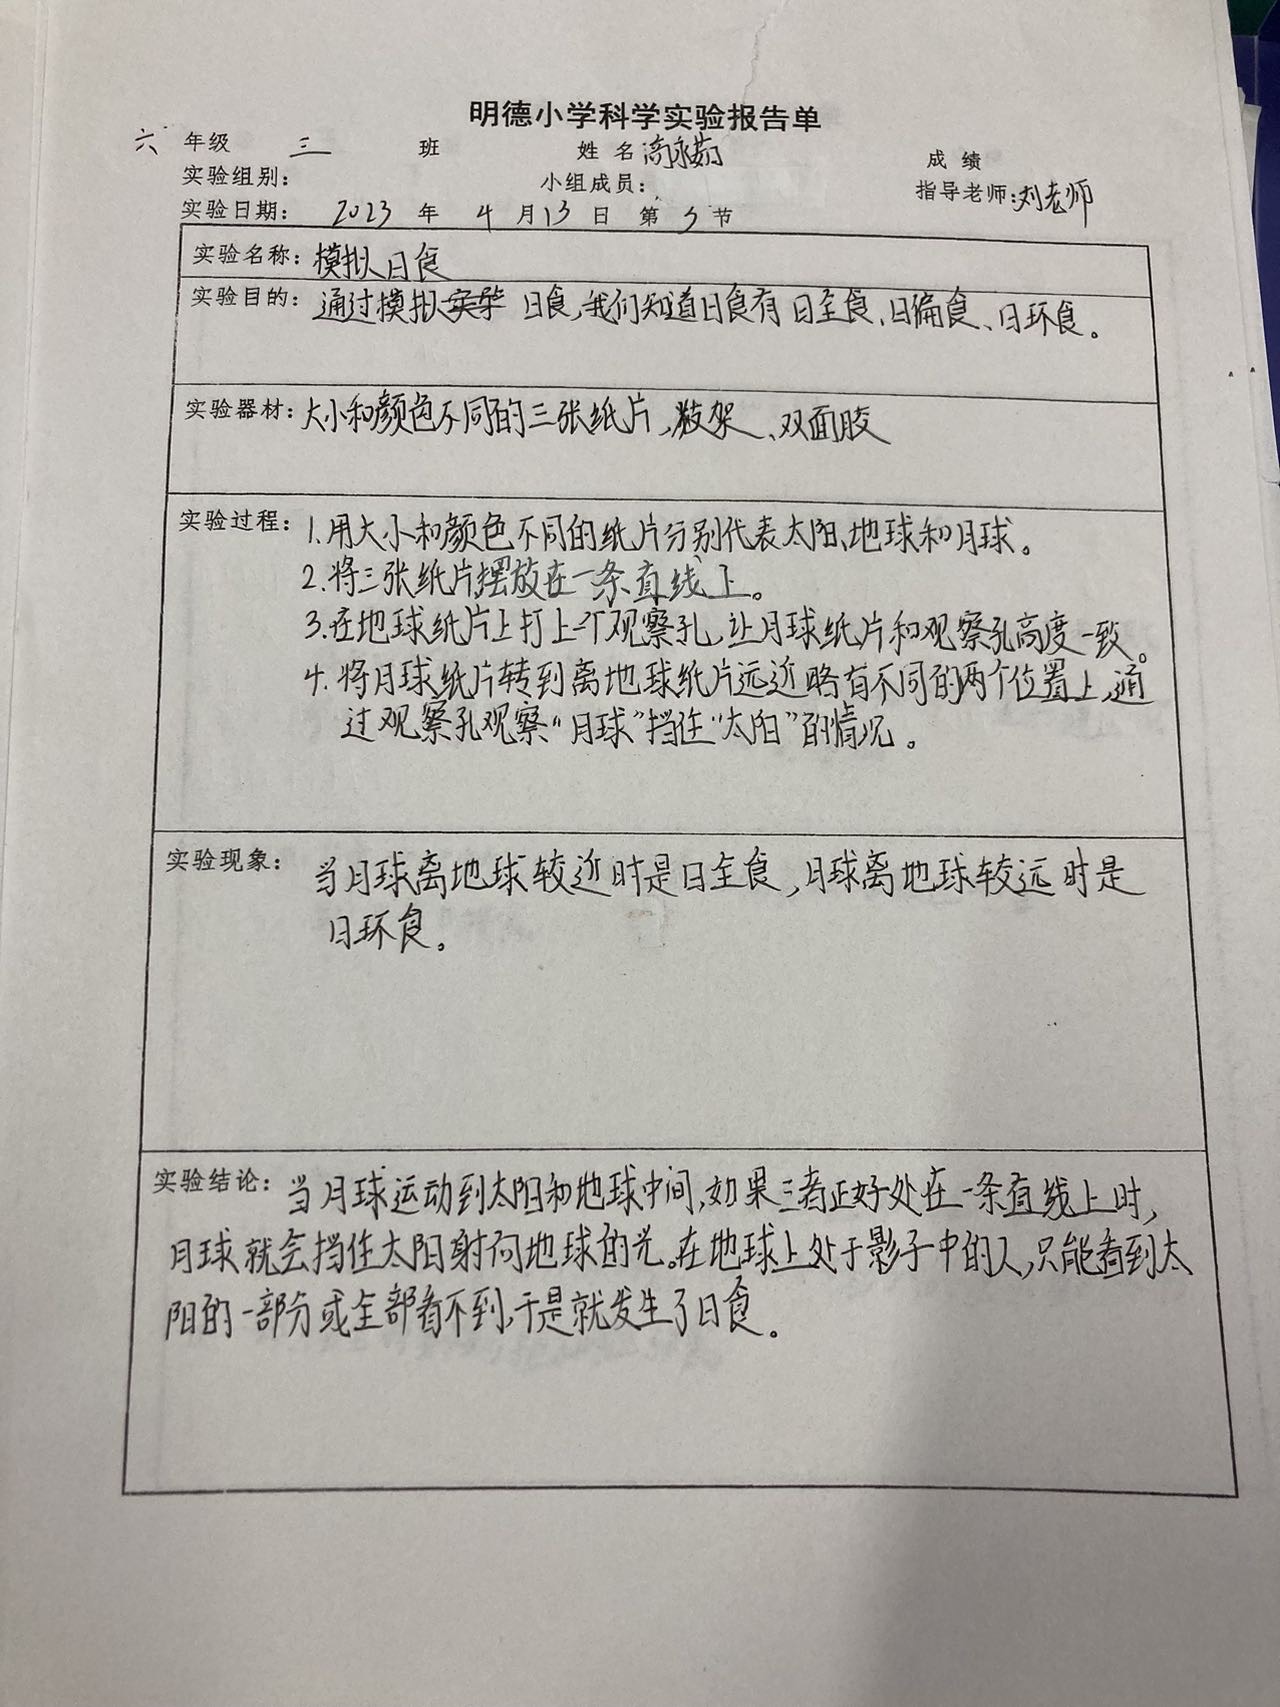 明德小学科学实验报告单
六 年级 三 班 姓名 成绩
实验组别: 小组成员: 指导老师:刘老师
实验日期: 2023 年 4 月 13 日 第 5 节
实验名称: 模拟日食
实验目的: 通过模拟实验 日食,我们知道日食有日全食、日偏食、日环食。
实验器材: 大小和颜色不同的三张纸片、支架、双面胶
实验过程: 1.用大小和颜色不同的纸片分别代表太阳、地球和月球。
2.将三张纸片摆放在一条直线上。
3.在地球纸片上打上一个观察孔,让月球纸片和观察孔高度一致。
4.将月球纸片转到离地球纸片远近略有不同的两个位置上,通
过观察孔观察“月球”挡住“太阳”的情况。
实验现象: 当月球离地球较近时是日全食,月球离地球较远时是
日环食。
实验结论: 当月球运动到太阳和地球中间,如果三者正好处在一条直线上时,
月球就会挡住太阳射向地球的光。在地球上处于影子中的人,只能看到太
阳的一部分或全部看不到,于是就发生了日食。